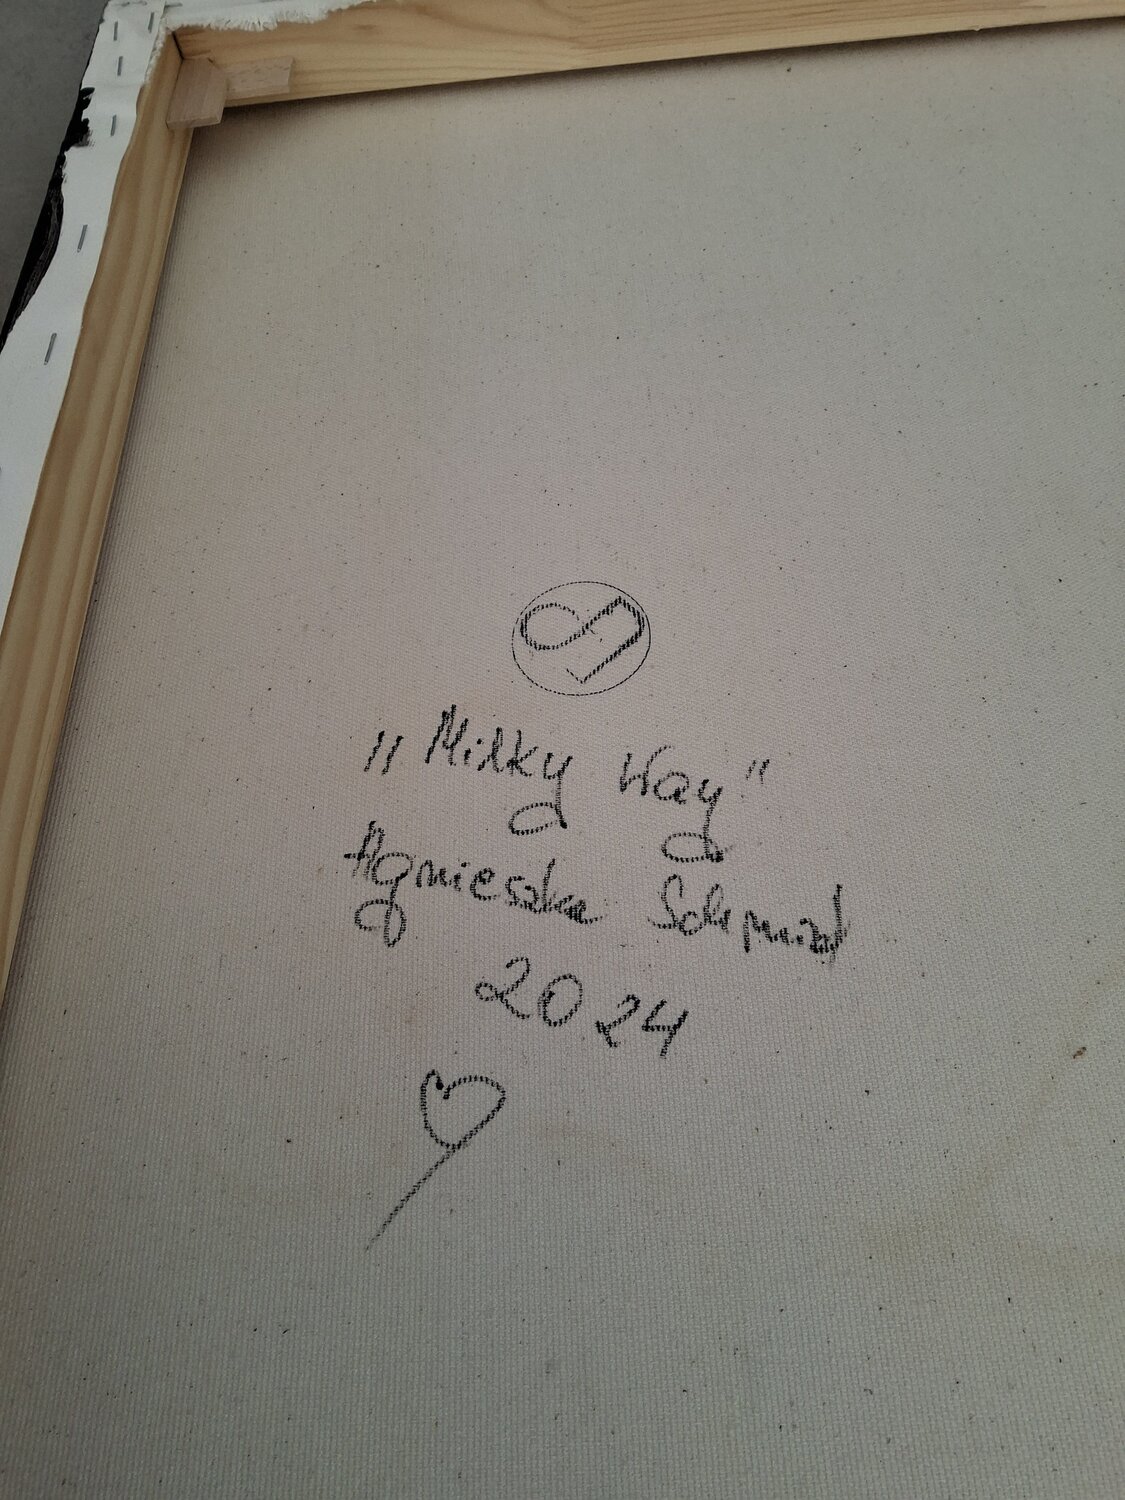 „Milky Way"
Agnieszka Schmidt
2024